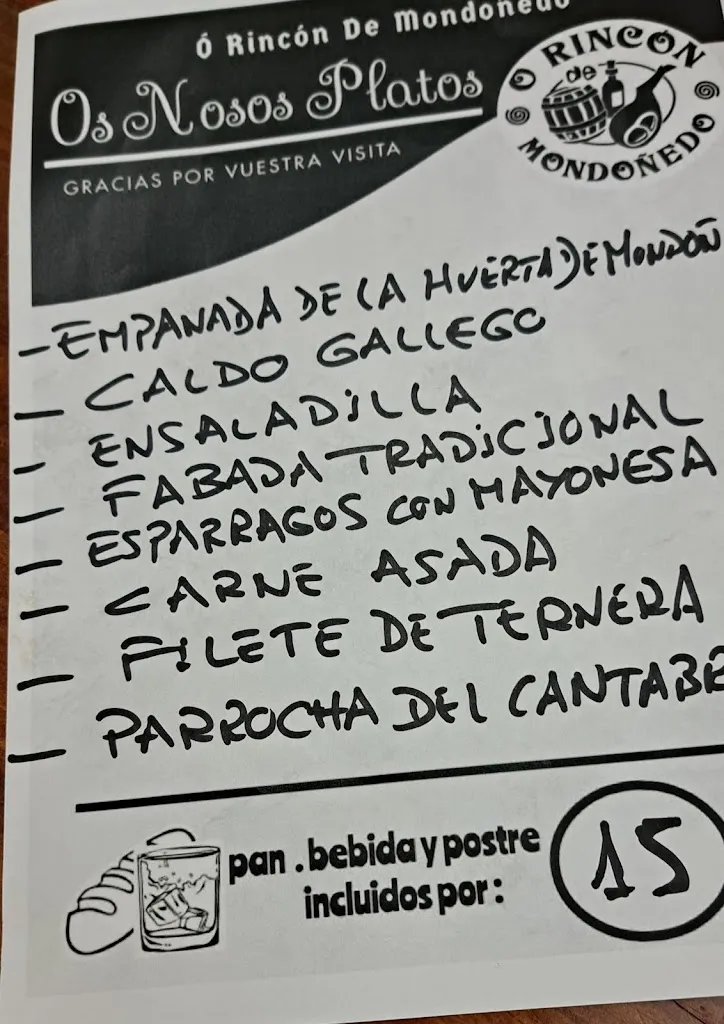 Ó Rincón De Mondoñedo
Os Nosos Platos
GRACIAS POR VUESTRA VISITA
O RINCÓN
de
MONDOÑEDO
- EMPANADA DE LA HUERTA DE MONDOÑ
- CALDO GALLEGO
- ENSALADILLA
- FABADA TRADICIONAL
- ESPARRAGOS CON MAYONESA
- CARNE ASADA
- FILETE DE TERNERA
- PARROCHA DEL CANTABR
pan . bebida y postre
incluidos por :
15